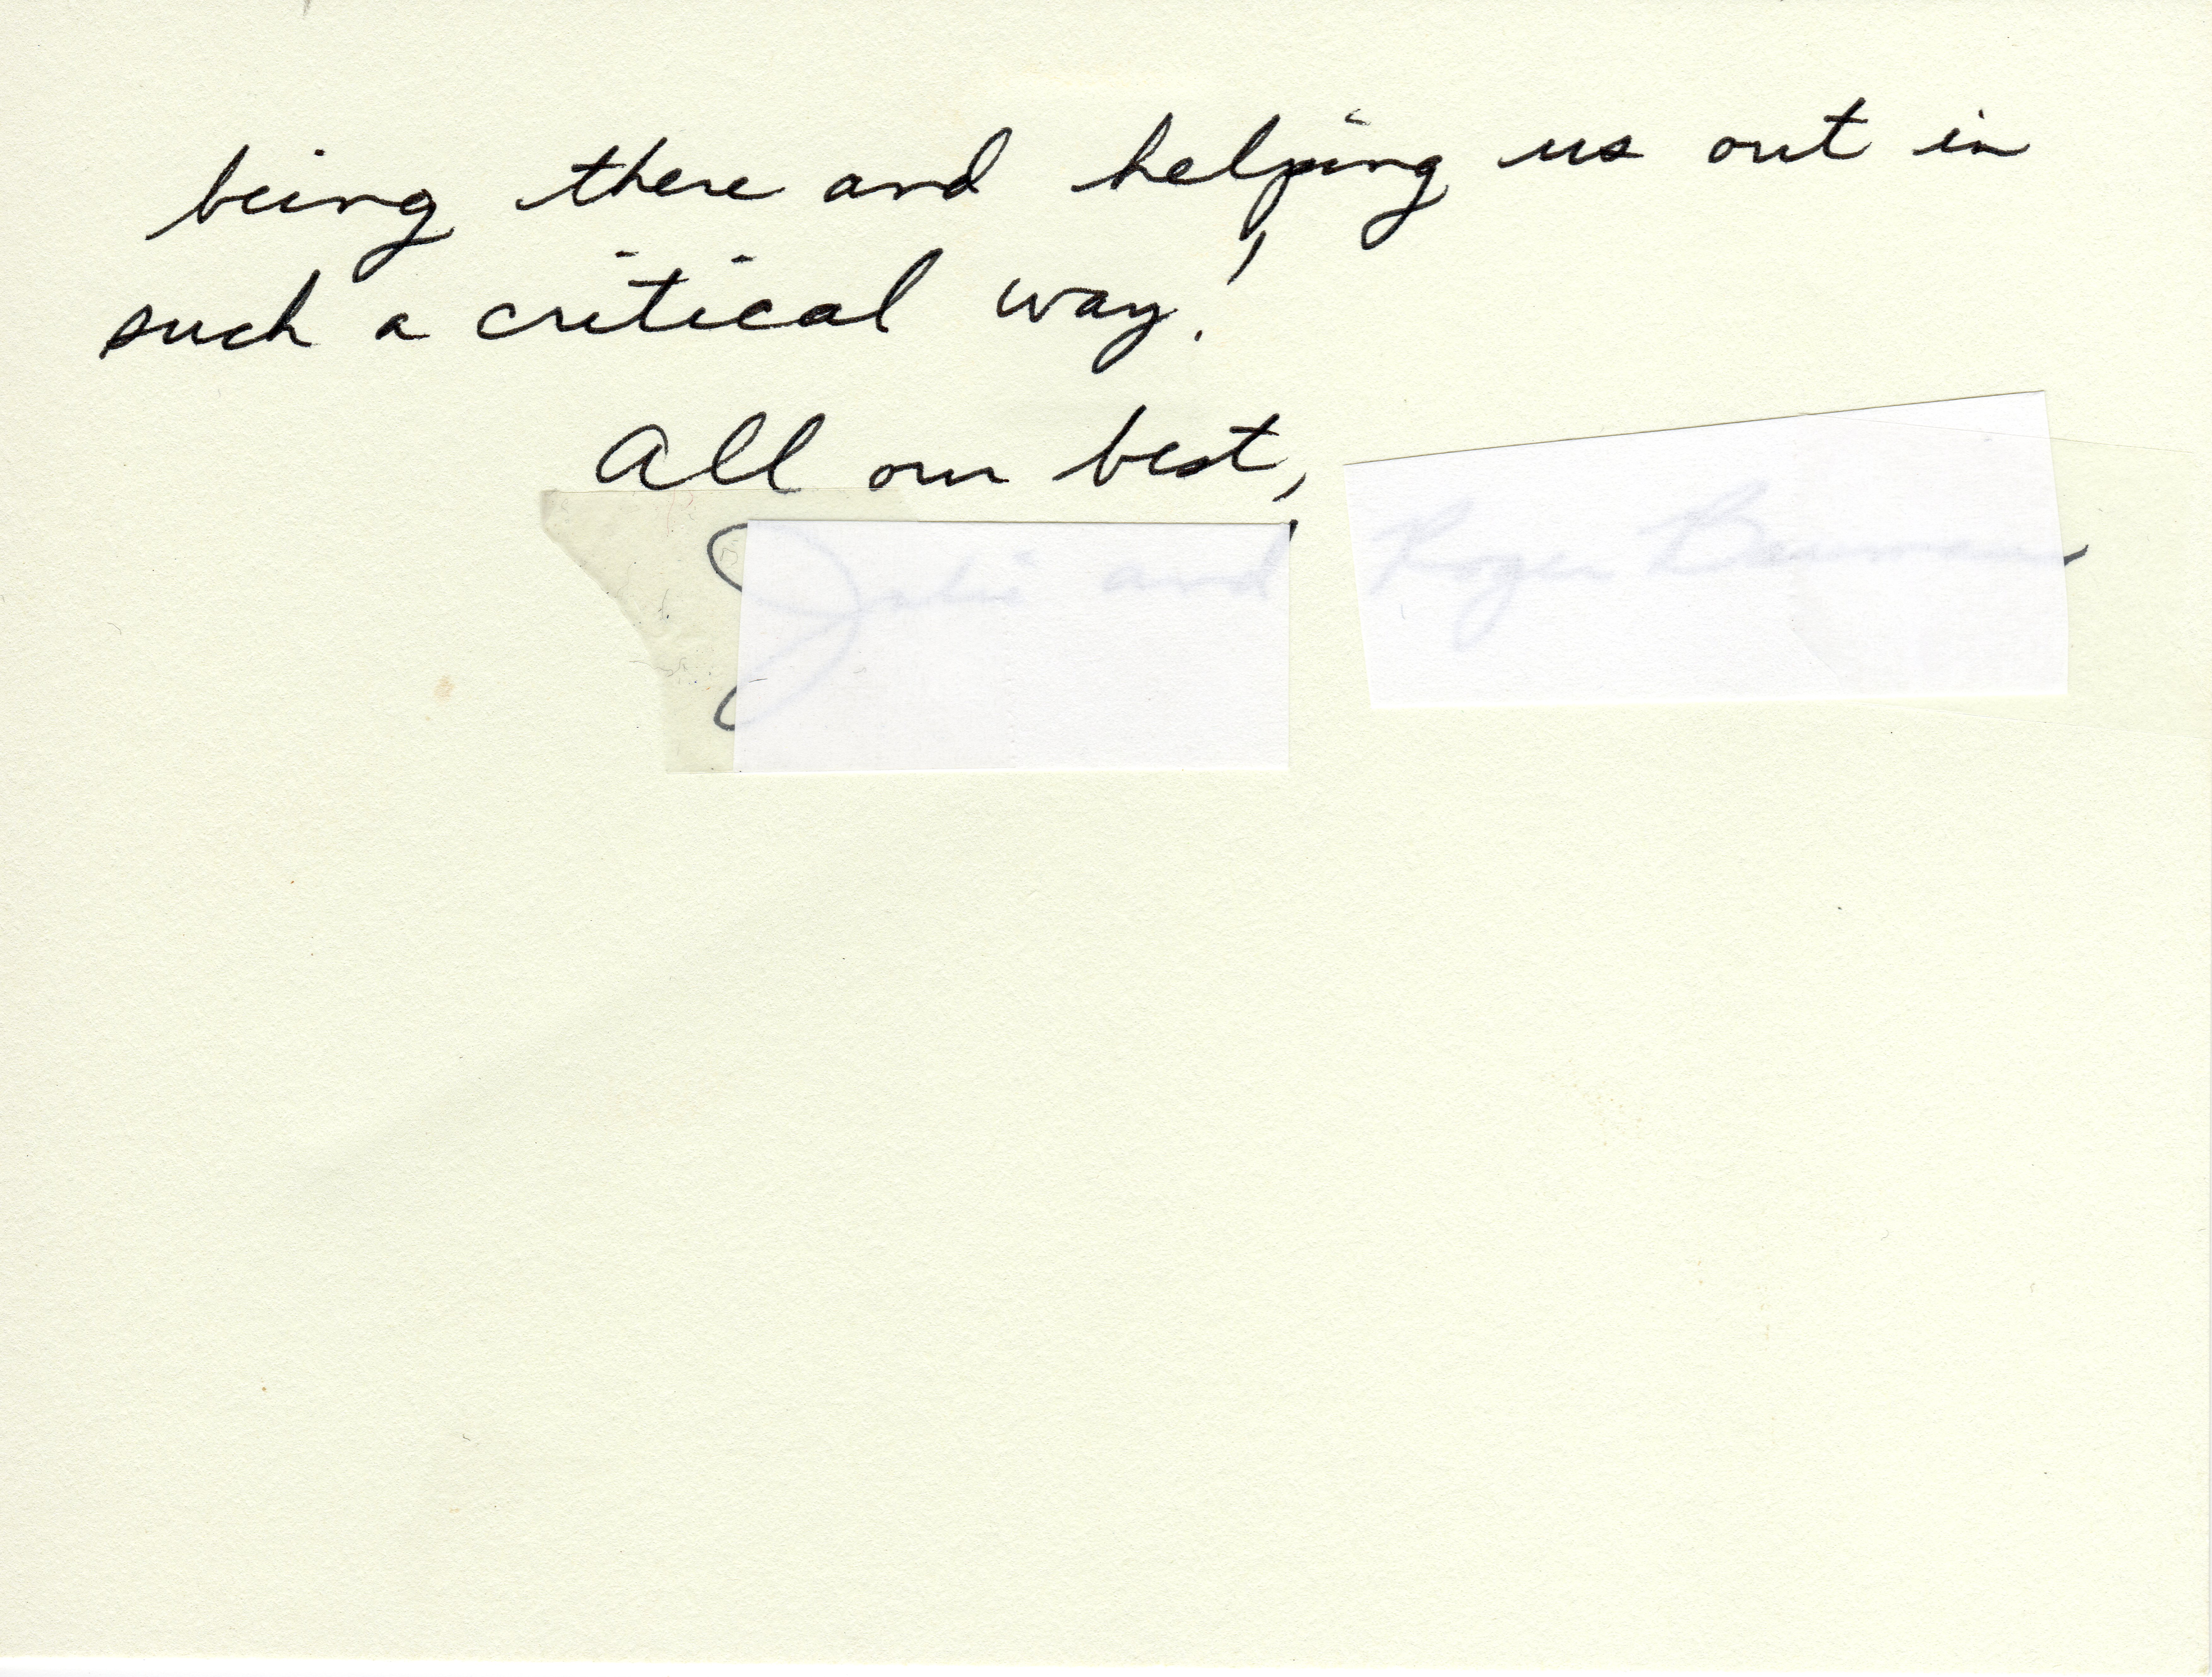 being there and helping us out in
such a critical way!
All our best,
and Roger